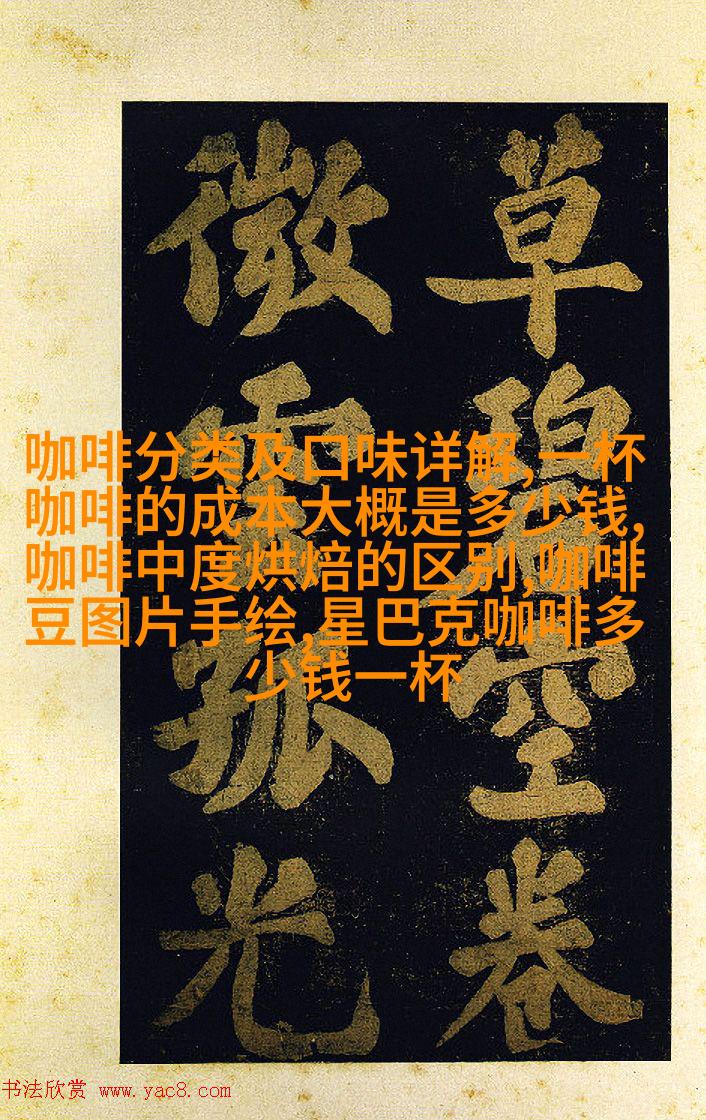 草碧空卷
微雲孤光
咖啡分类及口味详解,一杯
咖啡的成本大概是多少钱,
咖啡中度烘焙的区别,咖啡
豆图片手绘,星巴克咖啡多
少钱一杯
书法欣赏 www.yac8.com